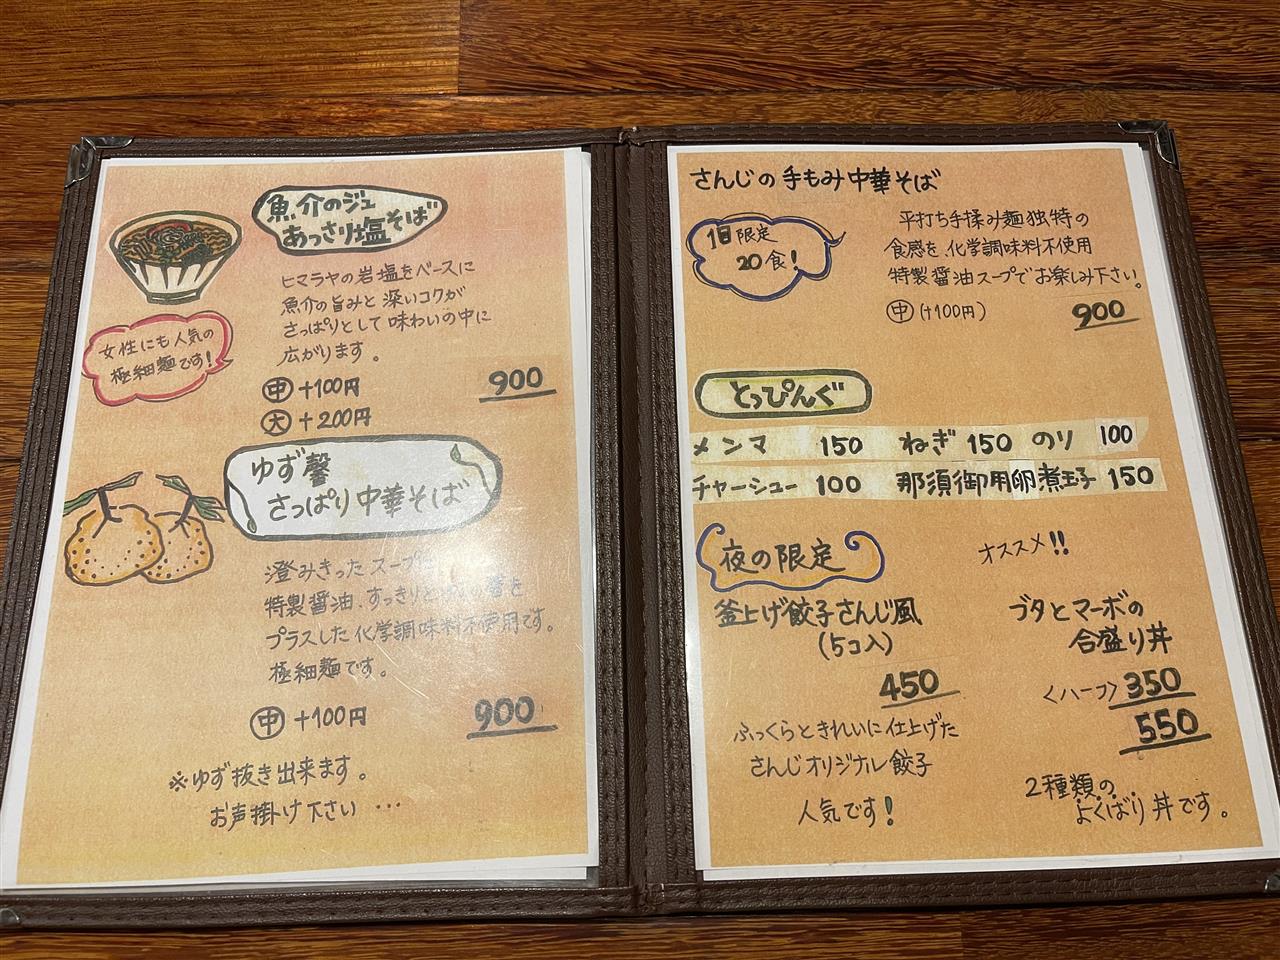 魚介のジュ
あっさり塩そば
ヒマラヤの岩塩をベースに
魚介の旨みと深いコクが
さっぱりとして味わいの中に
広がります。
女性にも人気の
極細麺です!
中 +100円
900
大 +200円
ゆず馨
さっぱり中華そば
澄みきったスープに
特製醤油、すっきりと
プラスした化学調味料不使用です。
極細麺です。
中 +100円
900
※ゆず抜き出来ます。
お声掛け下さい…
さんじの手もみ中華そば
1日限定
20食!
平打ち手揉み麺独特の
食感を、化学調味料不使用
特製醤油スープでお楽しみ下さい。
中(+100円)
900
とっぴんぐ
メンマ 150 ねぎ 150 のり 100
チャーシュー 100 那須御用卵煮玉子 150
夜の限定
オススメ!!
釜上げ餃子さんじ風
(5コ入)
450
ふっくらときれいに仕上げた
さんじオリジナル餃子
人気です!
ブタとマーボの
合盛り丼
<ハーフ> 350
550
2種類の
よくばり丼です。